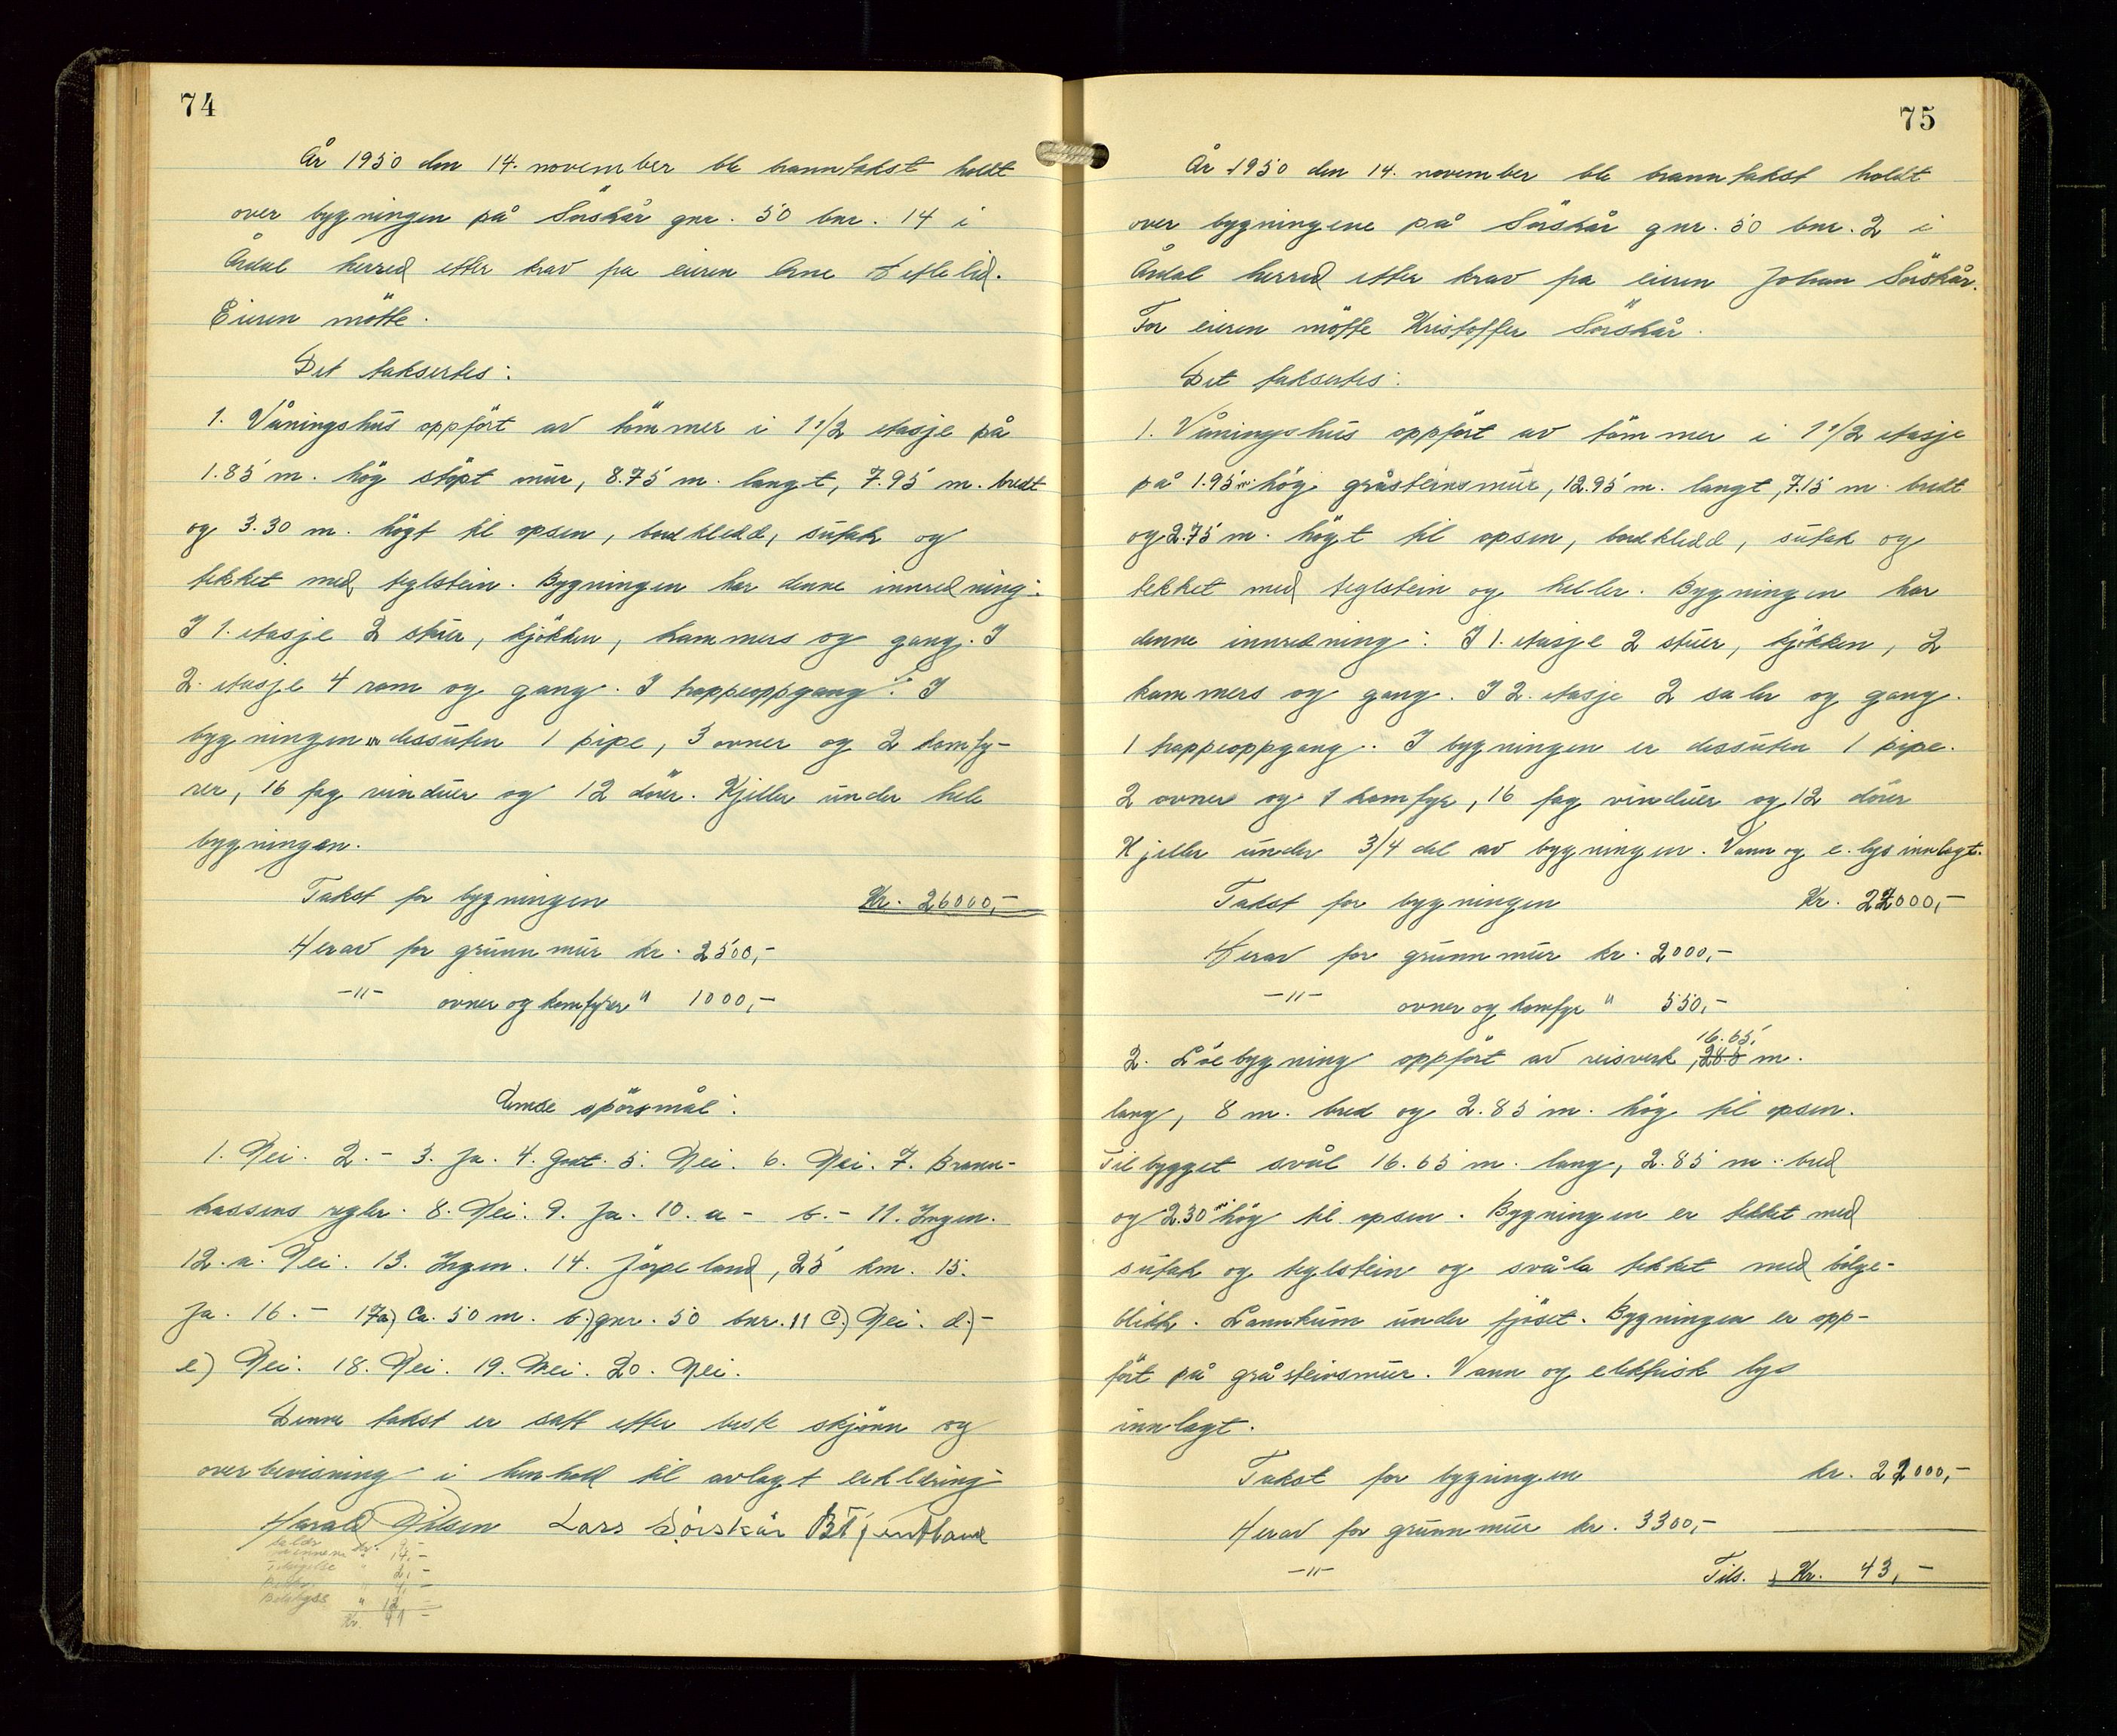 74
År 1950 den 14. november ble branntakst holdt
over bygningen på Sörskår gnr. 50 bnr. 14 i
Årdal herred etter krav fra eieren Arne Tetlelid.
Eieren mötte.
Det taksertes:
1. Våningshus oppfört av tömmer i 1 1/2 etasje på
1.85 m. hög stöpt mur, 8.75 m. langt, 7.95 m. bredt
og 3.30 m. högt til opsen, bordkledd, sutak og
tekket med teglstein. Bygningen har denne innredning:
I 1. etasje 2 stuer, kjökken, kammers og gang. I
2. etasje 4 rom og gang. I trappeoppgang. I
bygningen er dessuten 1 pipe, 3 ovner og 2 komfy-
rer, 16 fag vinduer og 12 dörer. Kjeller under hele
bygningen.
Takst for bygningen Kr. 26000,-
Herav for grunnmur kr. 2500,-
-"- ovner og komfyrer " 1000,-
Ymse spörsmål:
1. Nei. 2. - 3. Ja. 4. Godt. 5. Nei. 6. Nei. 7. Brann-
kassens regler. 8. Nei. 9. Ja. 10. a - b. - 11. Ingen.
12. a. Nei. 13. Ingen. 14. Jörpeland, 25 km. 15.
Ja. 16. - 17a) Ca. 50 m. b.) gnr. 50 bnr. 11 c.) Nei. d.) -
e) Nei. 18. Nei. 19. Nei. 20. Nei.
Denne takst er satt etter beste skjönn og
overbevisning i henhold til avlagt erklæring
Harald Nilsen Lars Sørskår
Kr.
75
År 1950 den 14. november ble branntakst holdt
over bygningene på Sörskår gnr. 50 bnr. 2 i
Årdal herred etter krav fra eieren Johan Sörskår.
For eieren mötte Kristoffer Sörskår.
Det taksertes:
1. Våningshus oppfört av tömmer i 1 1/2 etasje
på 1.95 m. hög gråsteinsmur, 12.95 m. langt, 7.15 m. bredt
og 2.75 m. högt til opsen, bordkledd, sutak og
tekket med teglstein og heller. Bygningen har
denne innredning: I 1. etasje 2 stuer, kjökken, 2
kammers og gang. I 2. etasje 2 saler og gang.
1 trappeoppgang. I bygningen er dessuten 1 pipe.
2 ovner og 1 komfyr, 16 fag vinduer og 12 dörer
Kjeller under 3/4 del av bygningen. Vann og e. lys innlagt.
Takst for bygningen Kr. 22000,-
Herav for grunnmur kr. 2000,-
-"- ovner og komfyr " 550,-
16.65
2. Löebygning oppfört av reisverk, m.
lang, 8 m. bred og 2.85 m. hög til opsen.
Tilbygget svål 16.65 m. lang, 2.85 m. bred
og 2.30 m hög til opsen. Bygningen er tekket med
sutak og teglstein og svåla tekket med bölge-
blikk. Landkum under fjöset. Bygningen er opp-
fört på gråsteinsmur. Vann og elektrisk lys
innlagt.
Takst for bygningen kr. 22000,-
Herav for grunnmur kr. 3300,-
-"- Tils. Kr. 43,-